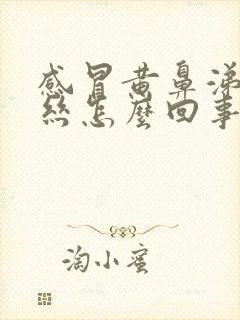 感冒黄鼻涕
丝怎么回事
淘小蜜